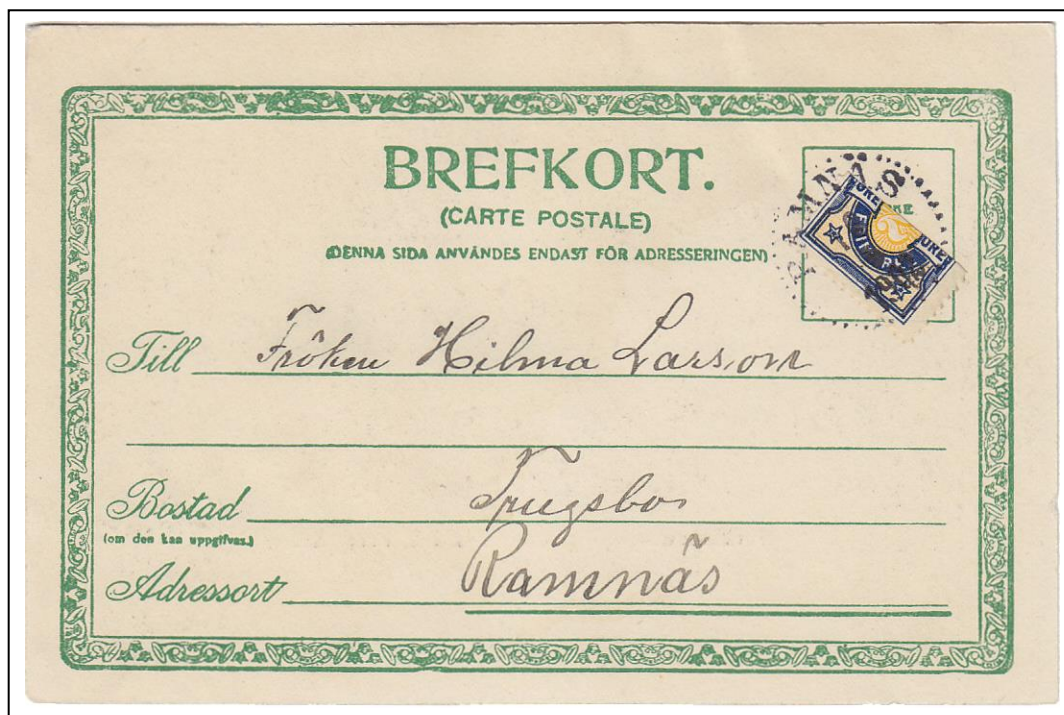 BREFKORT.
(CARTE POSTALE)
(DENNA SIDA ANVÄNDES ENDAST FÖR ADRESSERINGEN)
RAMNÄS
ÖRE
ÖRE
2
Till Fröken Hilma Larsson
Bostad Trugsbo
(om den kan uppgifvas.)
Adressort Ramnäs